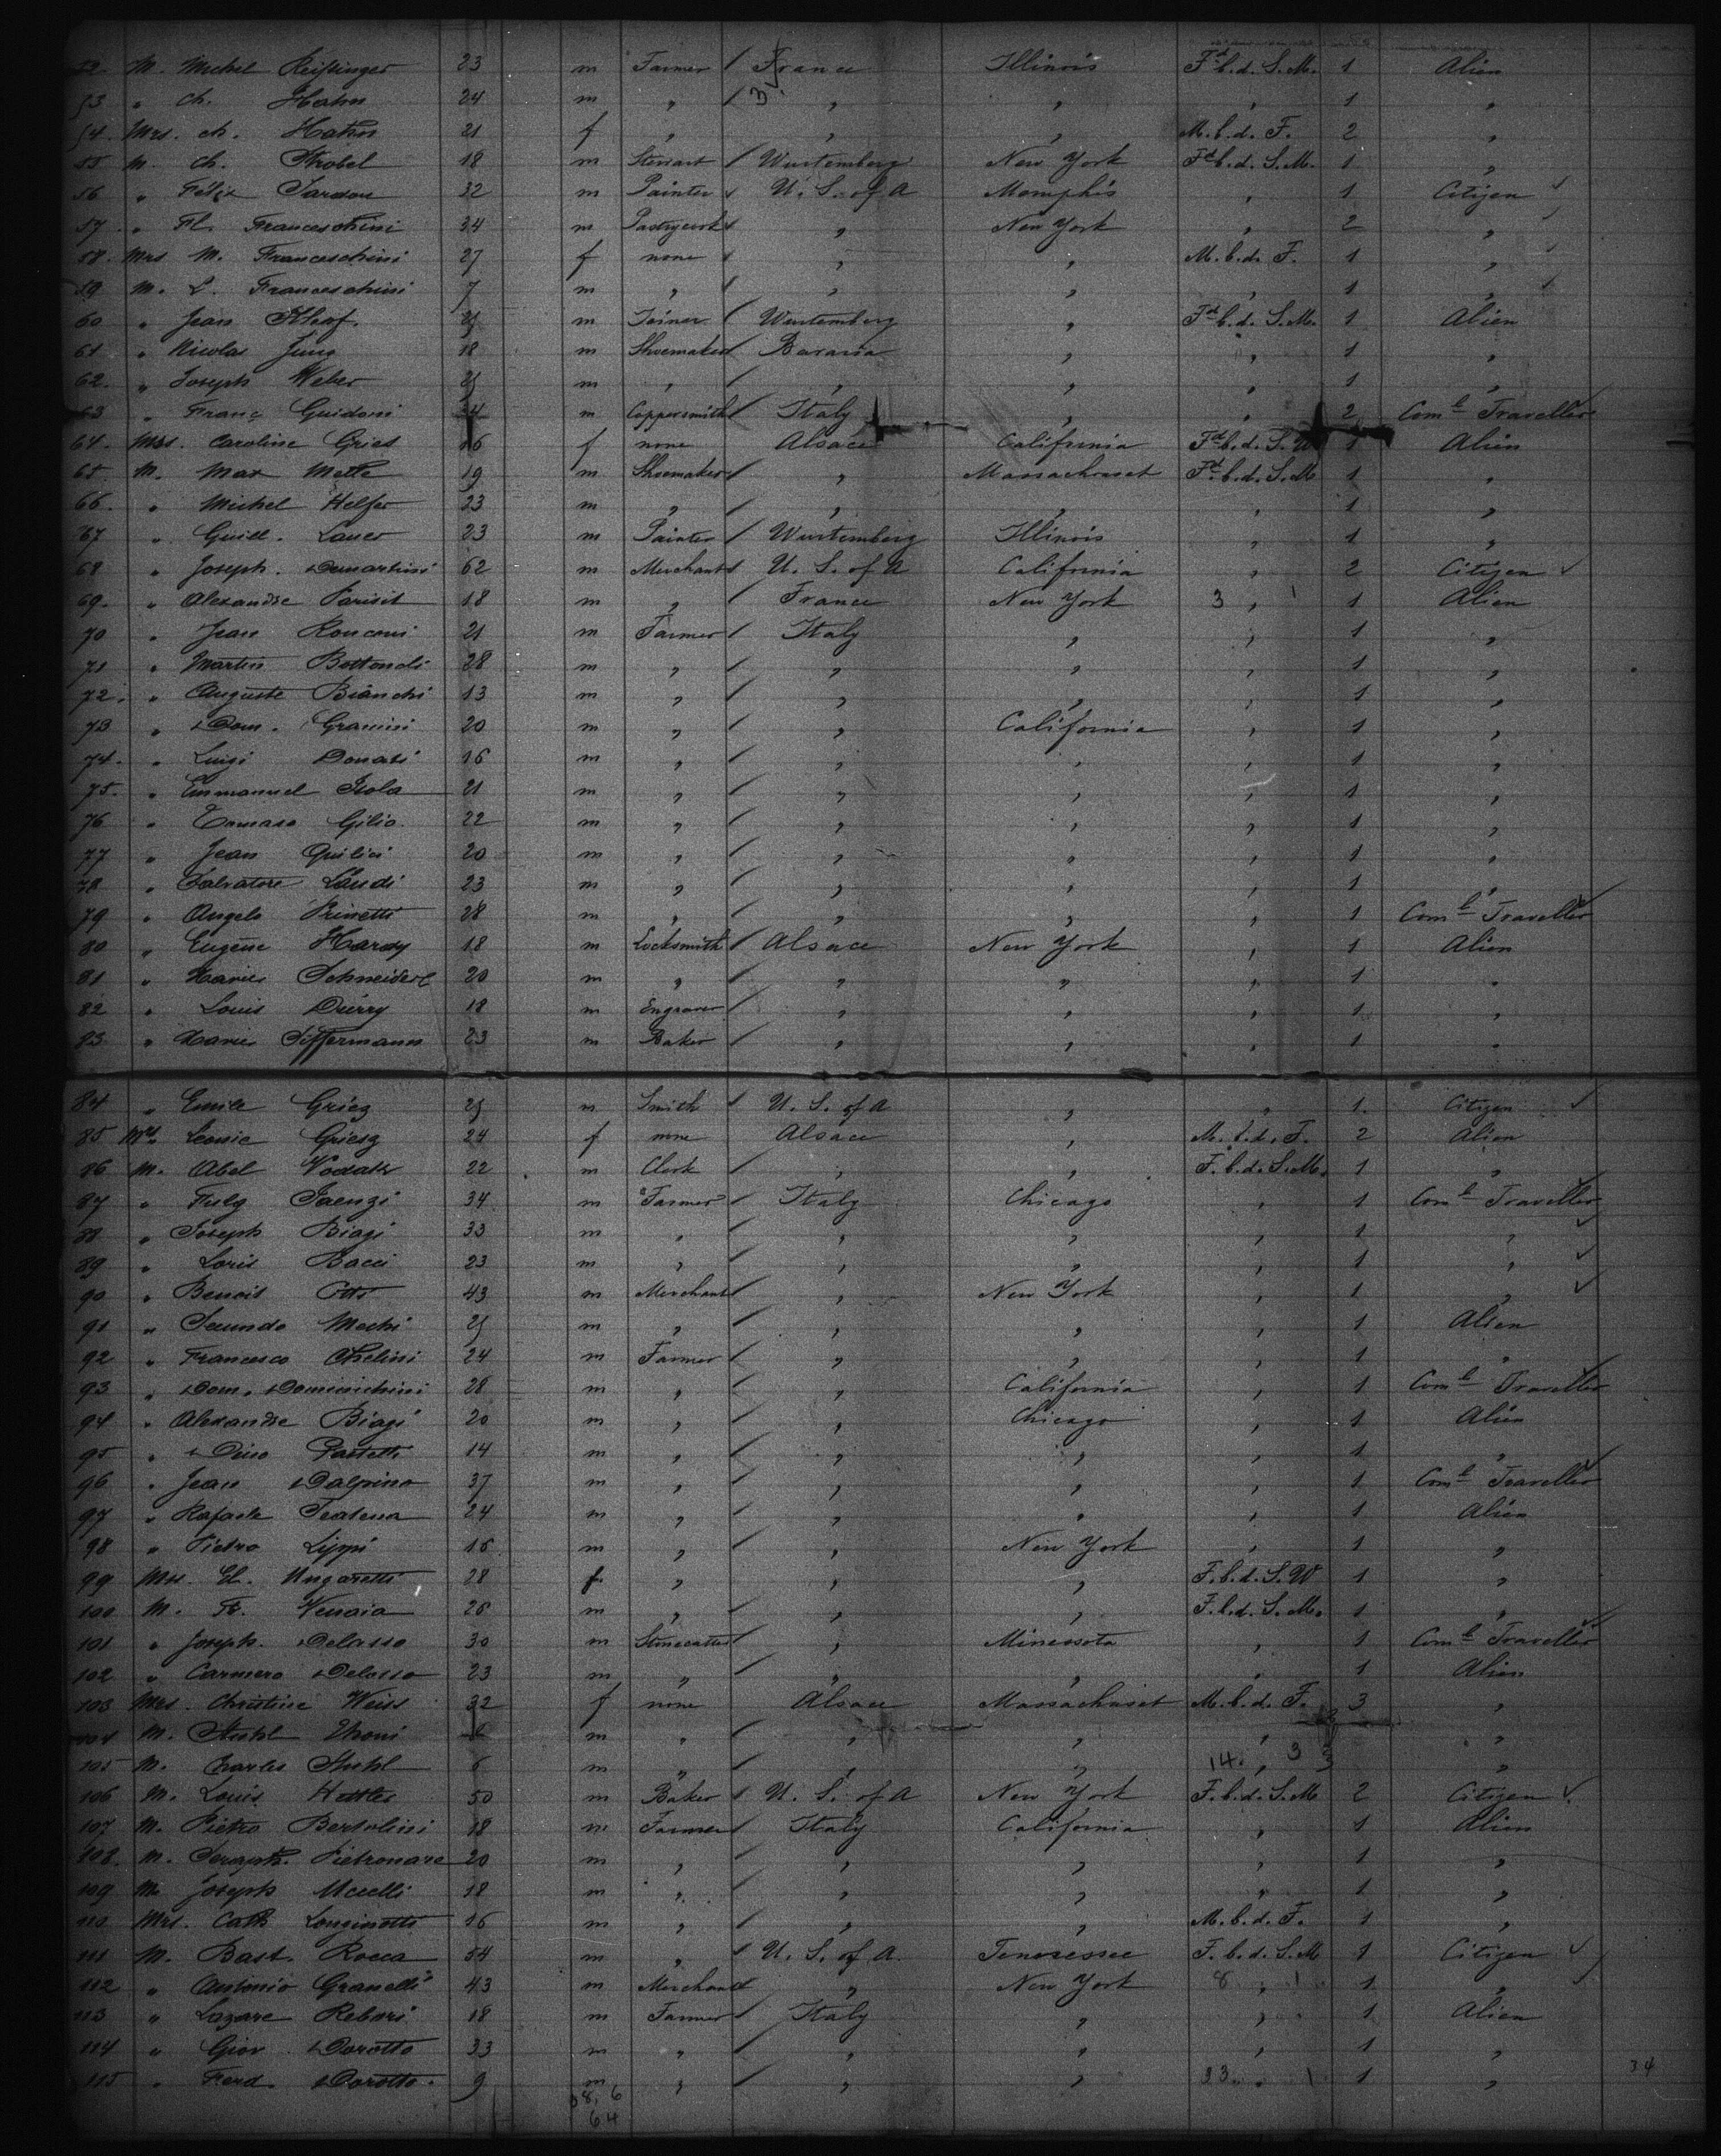 52 M. Michel Reissinger 23 m Farmer / France Illinois Fd b.d. S.M. 1 Alien
53 " Ch. Hahn 24 m " / " " " 1 "
54. Mrs. Ch. Hahn 21 f " " " M.b.d. F. 2 "
55 M. Ch. Strobel 18 m Stewart / Wurtemberg New York Fd b.d. S.M. 1 "
56 " Felix Sardou 32 m Painter / U. S. of A Memphis " 1 Citizen ✓
57 " Fl. Franceschini 34 m Pastrycook / " New York " 2 " ✓
58. Mrs M. Franceschini 27 f none / " " M.b.d. F. 1 " ✓
59 M. L. Franceschini 7 m " / " " " 1 " ✓
60 " Jean 25 m Joiner Wurtemberg " Fd b.d. S.M. 1 Alien
61 " Nicolas Jung 18 m Shoemaker / Bavaria " " 1 "
62. " Joseph Weber 25 m " / " " " 1 "
63 " Franç Guidoni 34 m Coppersmith / Italy " " 2 Coml Traveller ✓
64. Mrs. Caroline Gries 16 f none Alsace California Fd b.d. S.W 1 Alien
65 M. Max Mette 19 m Shoemaker / " Massachuset Fd b.d. S.M 1 "
66. " Michel Helfer 23 m " / " " " 1 "
67 " Guill. Lauer 23 m Painter / Wurtemberg Illinois " 1 "
68 " Joseph. Demartini 62 m Merchant / U. S. of A California " 2 Citizen ✓
69. " Alexandre Parisit 18 m " / France New York 3 " 1 1 Alien
70 " Jean Ronconi 21 m Farmer / Italy " " 1 "
71 " Martin 28 m " / " " " 1 "
72. " Auguste Bianchi 13 m " / " " " 1 "
73 " Dom. 20 m " / " California " 1 "
74. " Luigi Donati 16 m " / " " " 1 "
75. " Emmanuel Isola 21 m " / " " " 1 "
76 " Tomaso Gilio. 22 m " / " " " 1 "
77 " Jean Quilici 20 m " / " " " 1 "
78 " Salvatore Landi 23 m " / " " " 1 "
79 " Angelo Prinetti 28 m " / " " " 1 Coml Traveller ✓
80 " Eugène Hardy 18 m Locksmith / Alsace New York " 1 Alien
81 " Xavier Schneider 20 m " / " " " 1 "
82 " Louis Durry 18 m Engraver / " " " 1 "
83. " Xavier Siffermann 23 m Baker / " " " 1 "
84 " Emile Griez 25 m Smith / U. S. of A " " 1. Citizen ✓
85 Mrs. Leonie Griesz 24 f none Alsace " M.b.d. F. 2 Alien
86 M. Abel 22 m Clerk / " " F.b.d. S.M. 1 "
87 " 34 m Farmer / Italy Chicago " 1 Coml Traveller ✓
88 " Joseph Biagi 33 m " / " " " 1 " ✓
89 " Loris Bacci 23 m " / " " " 1 " ✓
90 " Benoit 43 m Merchant / " New York " 1 " ✓
91 " Secundo Mechi 25 m " / " " " 1 Alien
92 " Francesco Chelini 24 m Farmer / " " " 1 "
93 " Dom. Dominichini 28 m " / " California " 1 Coml Traveller ✓
94 " Alexandre Biagi 20 m " / " Chicago " 1 Alien
95 " Dino 14 m " / " " " 1 "
96 " Jean Dalpino 37 m " / " " " 1 Coml Traveller ✓
97 " Rafaele 24 m " / " " " 1 Alien
98 " Pietro Lippi 16 m " / " New York " 1 "
99 Mrs. El. Ungaretti 28 f. " " " F.b.d. S.W 1 "
100 M. Fr. 26 m " / " " F.b.d. S.M. 1 "
101 " Joseph. Delasso 30 m Stonecutter / " Minessota " 1 Coml Traveller ✓
102 " Carmero Delasso 23 m " / " " " 1 Alien
103 Mrs. Christine Weiss 32 f none Alsace Massachuset M.b.d. F. 3 "
104 M. Stuhl m " " " " "
105 M. Charles Stuhl 6 m " " " 14. " 3 3 "
106 M. Louis Hettler 50 m Baker / U. S. of A New York F.b.d. S.M 2 Citizen ✓
107 M. Pietro Bertolini 18 m Farmer / Italy California " 1 Alien
108. M. Seraph. Pietronave 20 m " / " " " 1 "
109 M. Joseph Ucelli 18 m " / " " " 1 "
110 Mrs. Cath Longinotti 16 m " / " " M.b.d. F. 1 "
111 M. Bast. Rocca 54 m " / U. S. of A. Tenesessee F.b.d. S.M 1 Citizen ✓
112 " Antonio Granelli 43 m Merchant / " New York 8 " 1 1 " ✓
113 " Lazare Rebori 18 m Farmer / Italy " " 1 Alien
114 " Giov. Dorotto 33 m " / " " " 1 "
115 " Ferd. Dorotto. 9 m " / " " 33. " 1 1 "
34
38, 6
64